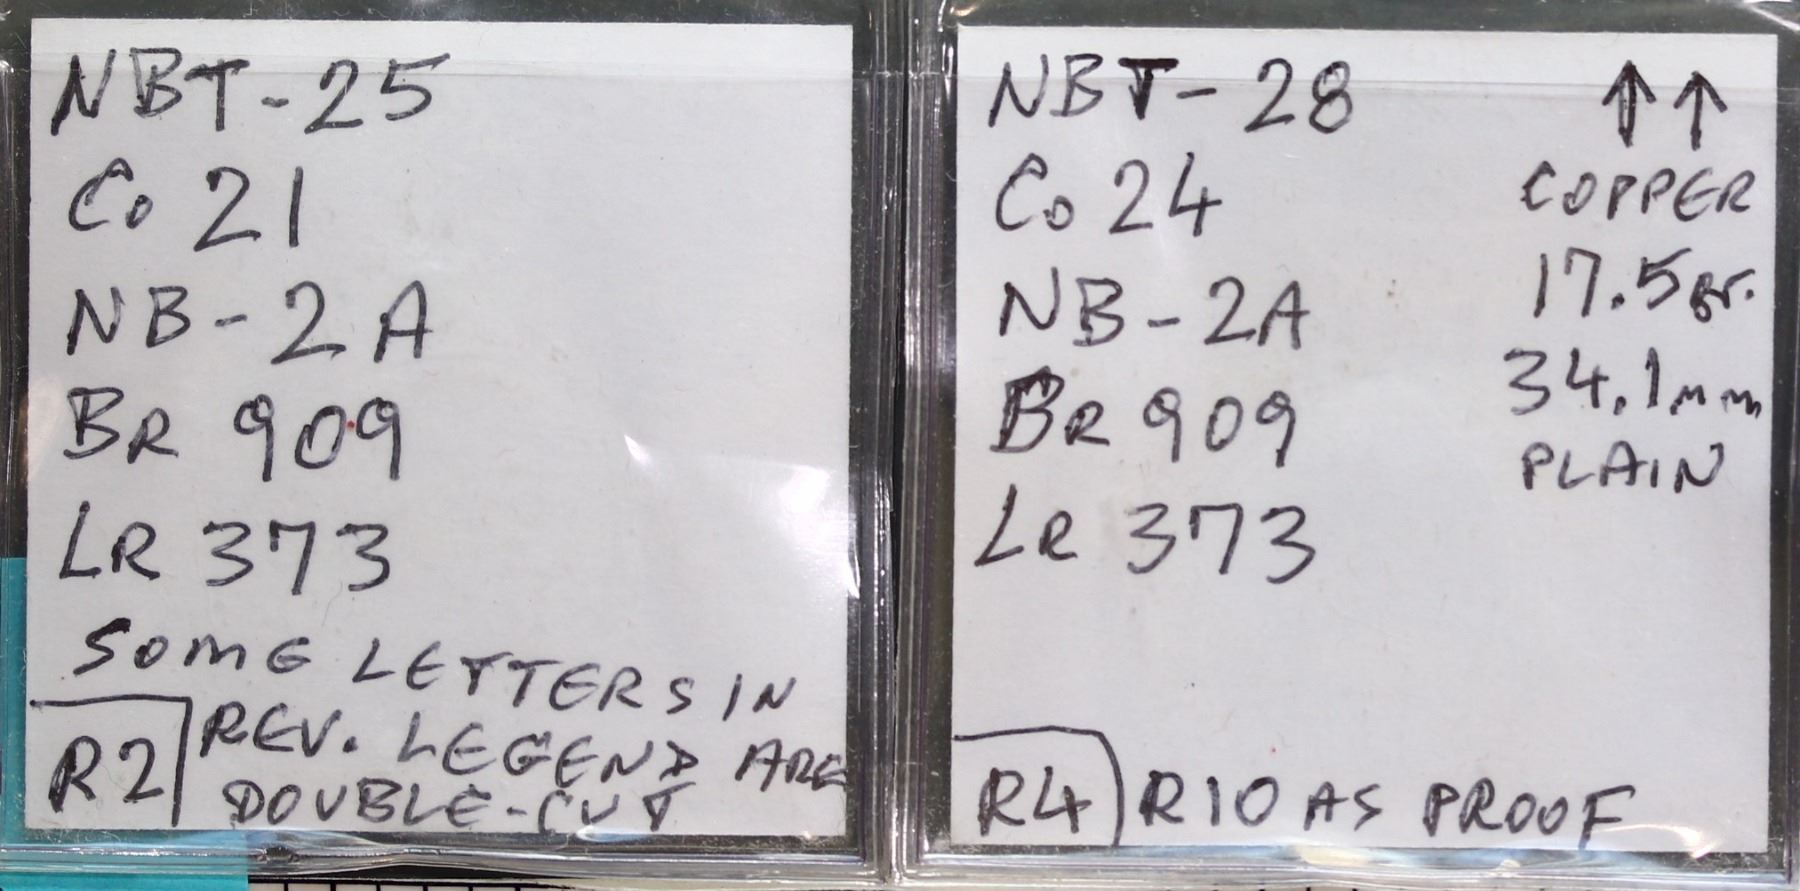 NBT-25
Co 21
NB-2A
BR 909
LR 373
SOME LETTERS IN
REV. LEGEND ARE
DOUBLE-CUT
R2
NBT-28
Co 24
NB-2A
BR 909
LR 373
↑↑
COPPER
17.5 gr.
34.1mm
PLAIN
R4 R10 AS PROOF